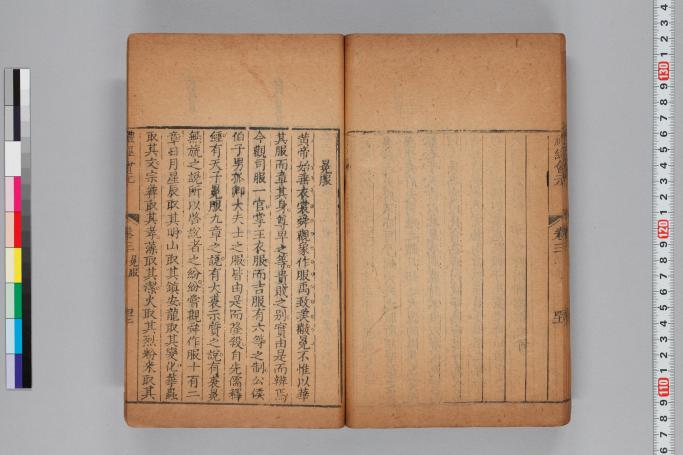 冕服
黄帝始垂衣裳舜觀象作服禹致美黻冕不惟以華
其服而章其身尊卑之等貴賤之别實由是而辨焉
今觀司服一官掌王衣服而吉服有六等之制公侯
伯子男孤卿大夫士之服皆由是而降殺自先儒釋
經有天子冕服九章之説有大裘示質之説有衮冕
無旒之説所以啓説者之紛紛嘗觀舜作服十有二
章日月星辰取其明山取其鎮安龍取其變化華蟲
取其文宗彝取其孝藻取其潔火取其烈粉米取其
禮經會元
卷三 冕服
卷三